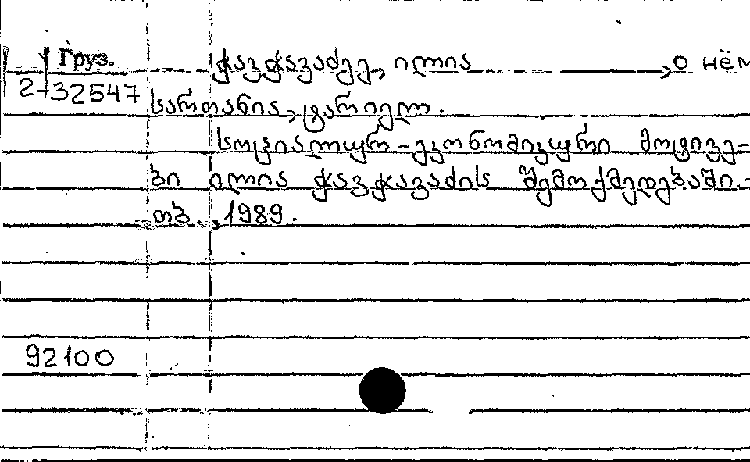 Груз. ჭავჭავაძე, ილია о нём
2-32547
სართანია, ტარიელ.
სოციალურ-ეკონომიკური მოტივე-
ბი ილია ჭავჭავაძის შემოქმედებაში.-
თბ., 1989.
92100